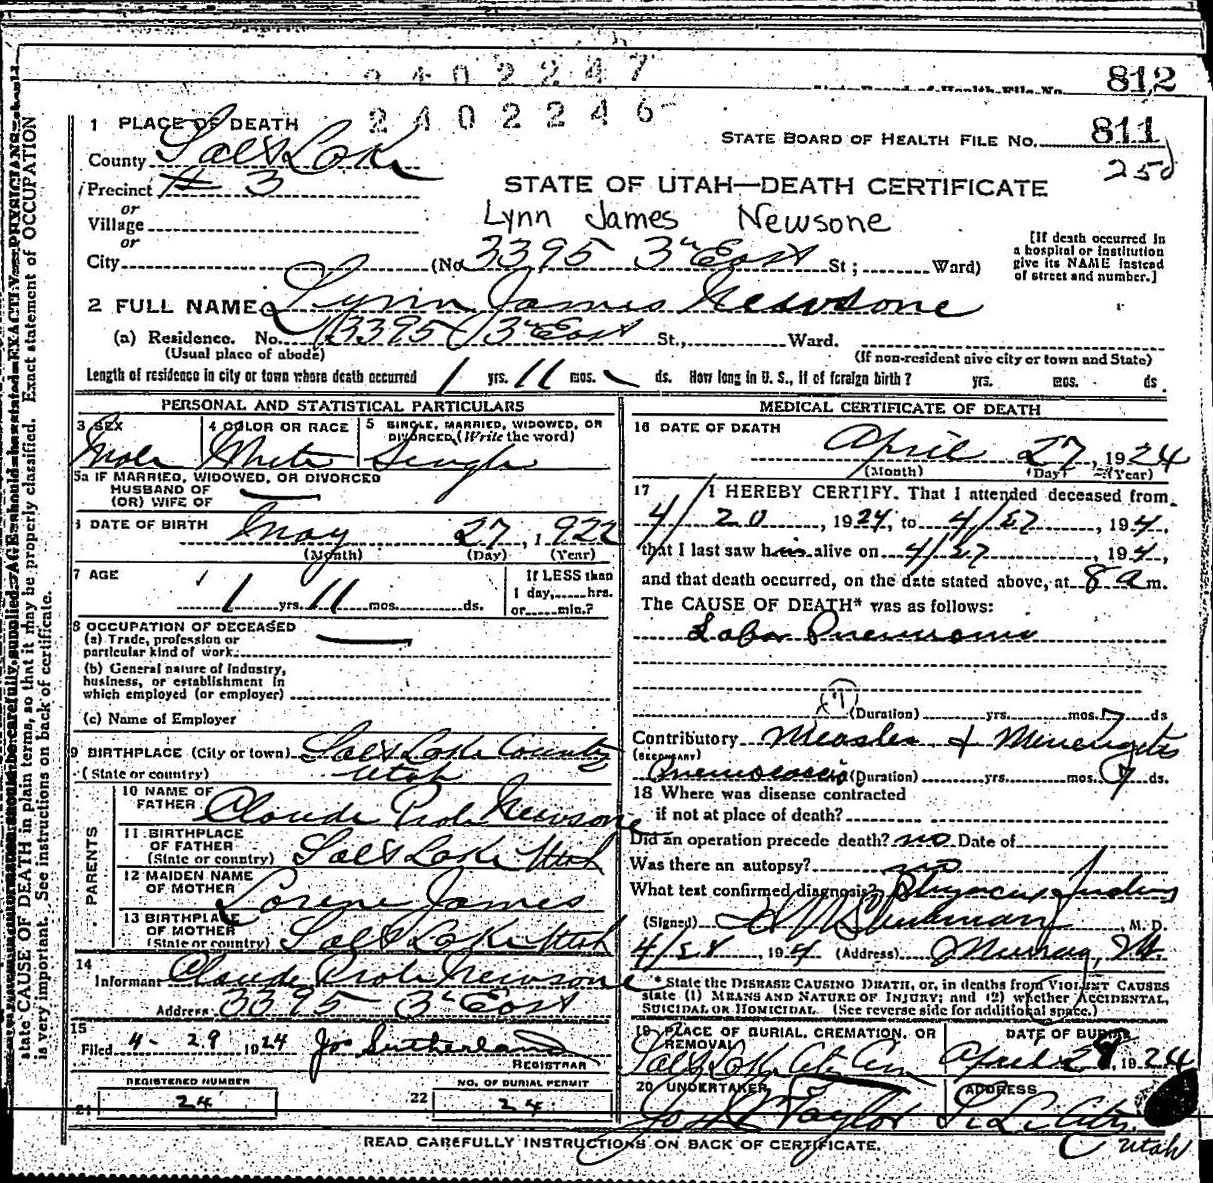 2402247
812
2402246
1 PLACE OF DEATH
STATE BOARD OF HEALTH FILE NO. 811
County Salt Lake
25d
Precinct # 3
STATE OF UTAH—DEATH CERTIFICATE
or
Village
Lynn James Newsone
or
City (No 3395 3rd East St; Ward)
[If death occurred in
a hospital or institution
give its NAME instead
of street and number.]
2 FULL NAME Lynn James Newsone
(a) Residence. No. 3395 3rd East St., Ward.
(Usual place of abode) (If non-resident give city or town and State)
Length of residence in city or town where death occurred 1 yrs. 11 mos. ds. How long in U. S., if of foreign birth? yrs. mos. ds.
PERSONAL AND STATISTICAL PARTICULARS
3 SEX
Male
4 COLOR OR RACE
White
5 SINGLE, MARRIED, WIDOWED, OR
DIVORCED, (Write the word)
Single
5a IF MARRIED, WIDOWED, OR DIVORCED
HUSBAND OF
(OR) WIFE OF
DATE OF BIRTH May 27, 1922
(Month) (Day) (Year)
7 AGE
1 yrs. 11 mos. ds.
If LESS than
1 day, hrs.
or min.?
8 OCCUPATION OF DECEASED
(a) Trade, profession or
particular kind of work
(b) General nature of industry,
business, or establishment in
which employed (or employer)
(c) Name of Employer
9 BIRTHPLACE (City or town) Salt Lake County
(State or country) Utah
PARENTS
10 NAME OF
FATHER Claude Newsone
11 BIRTHPLACE
OF FATHER
(State or country) Salt Lake Utah
12 MAIDEN NAME
OF MOTHER Lorene James
13 BIRTHPLACE
OF MOTHER
(State or country) Salt Lake Utah
14
Informant Claude Newsone
Address 3395 3rd East
15
Filed 4-29 1924 Jos Sutherland
REGISTRAR
REGISTERED NUMBER
21 24
NO. OF BURIAL PERMIT
22 24
MEDICAL CERTIFICATE OF DEATH
16 DATE OF DEATH
April 27, 1924
(Month) (Day) (Year)
17 I HEREBY CERTIFY. That I attended deceased from
4/20, 1924, to 4/27, 194.
that I last saw him alive on 4/27, 194,
and that death occurred, on the date stated above, at 8 a m.
The CAUSE OF DEATH* was as follows:
Lobar Pneumonia
(Duration) yrs. mos. 7 ds
Contributory Measles & Meningitis
(SECONDARY)
(Duration) yrs. mos. 7 ds.
18 Where was disease contracted
if not at place of death?
Did an operation precede death? no Date of
Was there an autopsy? no
What test confirmed diagnosis? Physical Findings
(Signed) M. D.
194 (Address) Murray, Ut.
*State the DISEASE CAUSING DEATH, or, in deaths from VIOLENT CAUSES
state (1) MEANS AND NATURE OF INJURY; and (2) whether ACCIDENTAL,
SUICIDAL OR HOMICIDAL (See reverse side for additional space.)
19 PLACE OF BURIAL, CREMATION, OR
REMOVAL
Salt Lake City Cem
DATE OF BURIAL
April 28, 1924
20 UNDERTAKER
Taylor
ADDRESS
S L City
Utah
READ CAREFULLY INSTRUCTIONS ON BACK OF CERTIFICATE.
state CAUSE OF DEATH in plain terms, so that it may be properly classified. Exact statement of OCCUPATION
is very important. See instructions on back of certificate.